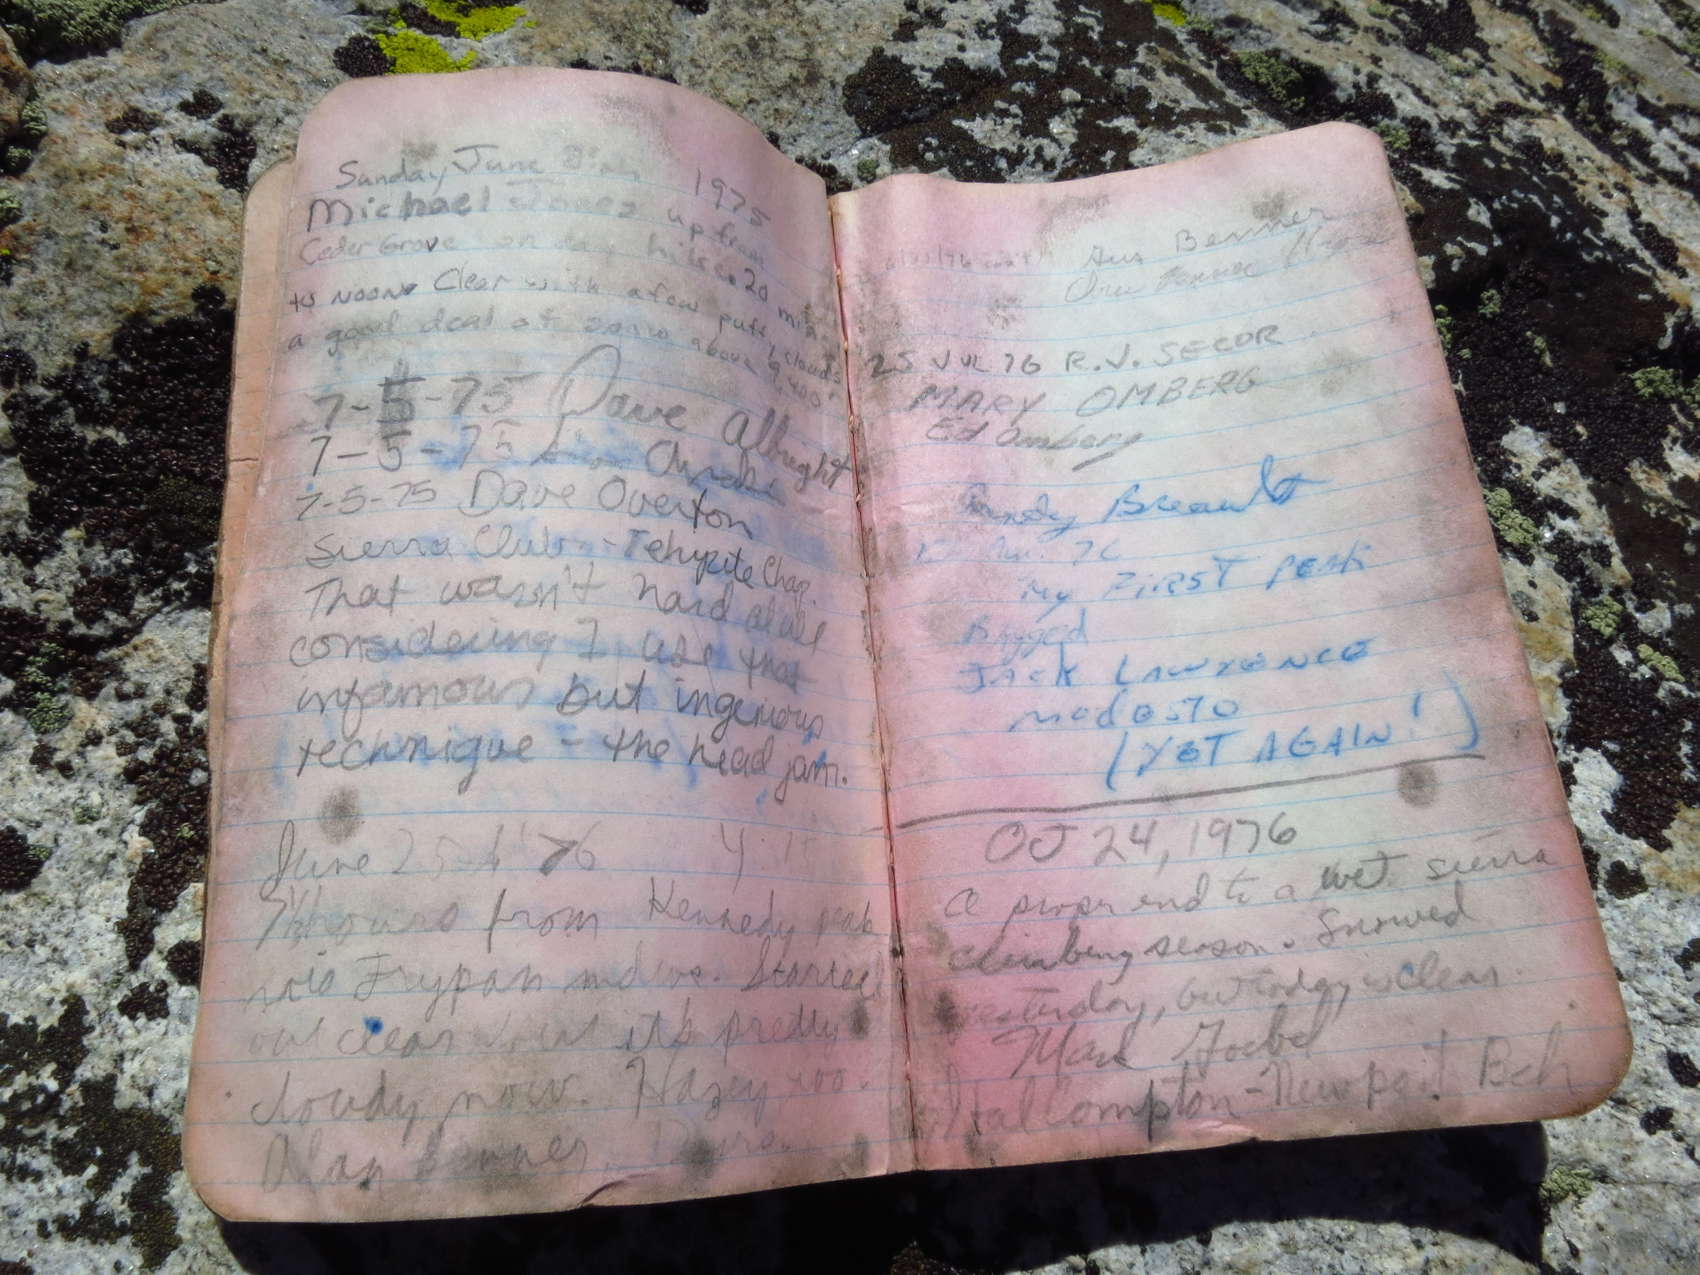 Sunday June 1975
Michael up from
Ceder Grove on day hike. 20 min
to NOON. Clear with a few puffy clouds
a good deal of snow above 9,400'
7-5-75 Dave Albright
7-5-75
7-5-75 Dave Overton
Sierra Club - Tehipite Chap.
That wasn't hard at all
considering I use that
infamous but ingenious
technique - the head jam.
June 25 76
7½ hours from Kennedy peak
via Frypan mdws. Started
out clear but it's pretty
cloudy now. Hazey too.
Alan Benner,
Benner
25 JUL 76 R.J. SECOR
MARY OMBERG
Ed Omberg
Randy Breault
76
My FIRST PEAK
Bagged
JACK LAWRENCE
MODESTO
(YET AGAIN!)
OCT 24, 1976
A proper end to a wet sierra
climbing season. Snowed
yesterday, but today is clear.
Mark Goebel
Hal Compton - Newport Bch